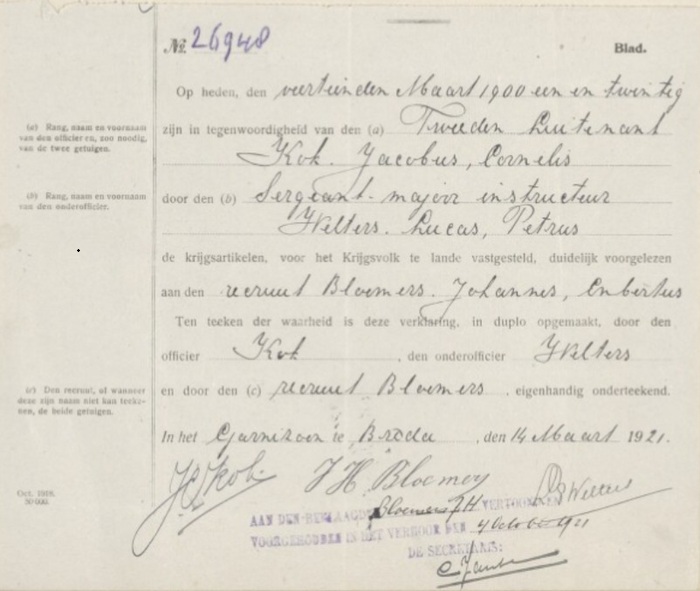 No. 26948
Blad.
Op heden, den veertienden Maart 1900 een en twintig
(a) Rang, naam en voornaam
van den officier en, zoo noodig,
van de twee getuigen.
zijn in tegenwoordigheid van den (a) Tweeden Luitenant
Kok. Jacobus, Cornelis
(b) Rang, naam en voornaam
van den onderofficier.
door den (b) Sergeant-majoor instructeur
Welters. Lucas, Petrus
de krijgsartikelen, voor het Krijgsvolk te lande vastgesteld, duidelijk voorgelezen
aan den recruut Bloemers. Johannes, Enbertus
Ten teeken der waarheid is deze verklaring, in duplo opgemaakt, door den
officier Kok, den onderofficier Welters
(c) Den recruut, of wanneer
deze zijn naam niet kan teeke-
nen, de beide getuigen.
en door den (c) recruut Bloemers, eigenhandig onderteekend.
In het Garnizoen te Breda, den 14 Maart 1921.
JC Kok. J H Bloemers Welters
Oct. 1918.
30 000.
AAN DEN BEKLAAGDE Bloemers J.H. VERTOOND EN
VOORGEHOUDEN IN HET VERHOOR VAN 4 October 1921
DE SECRETARIS: